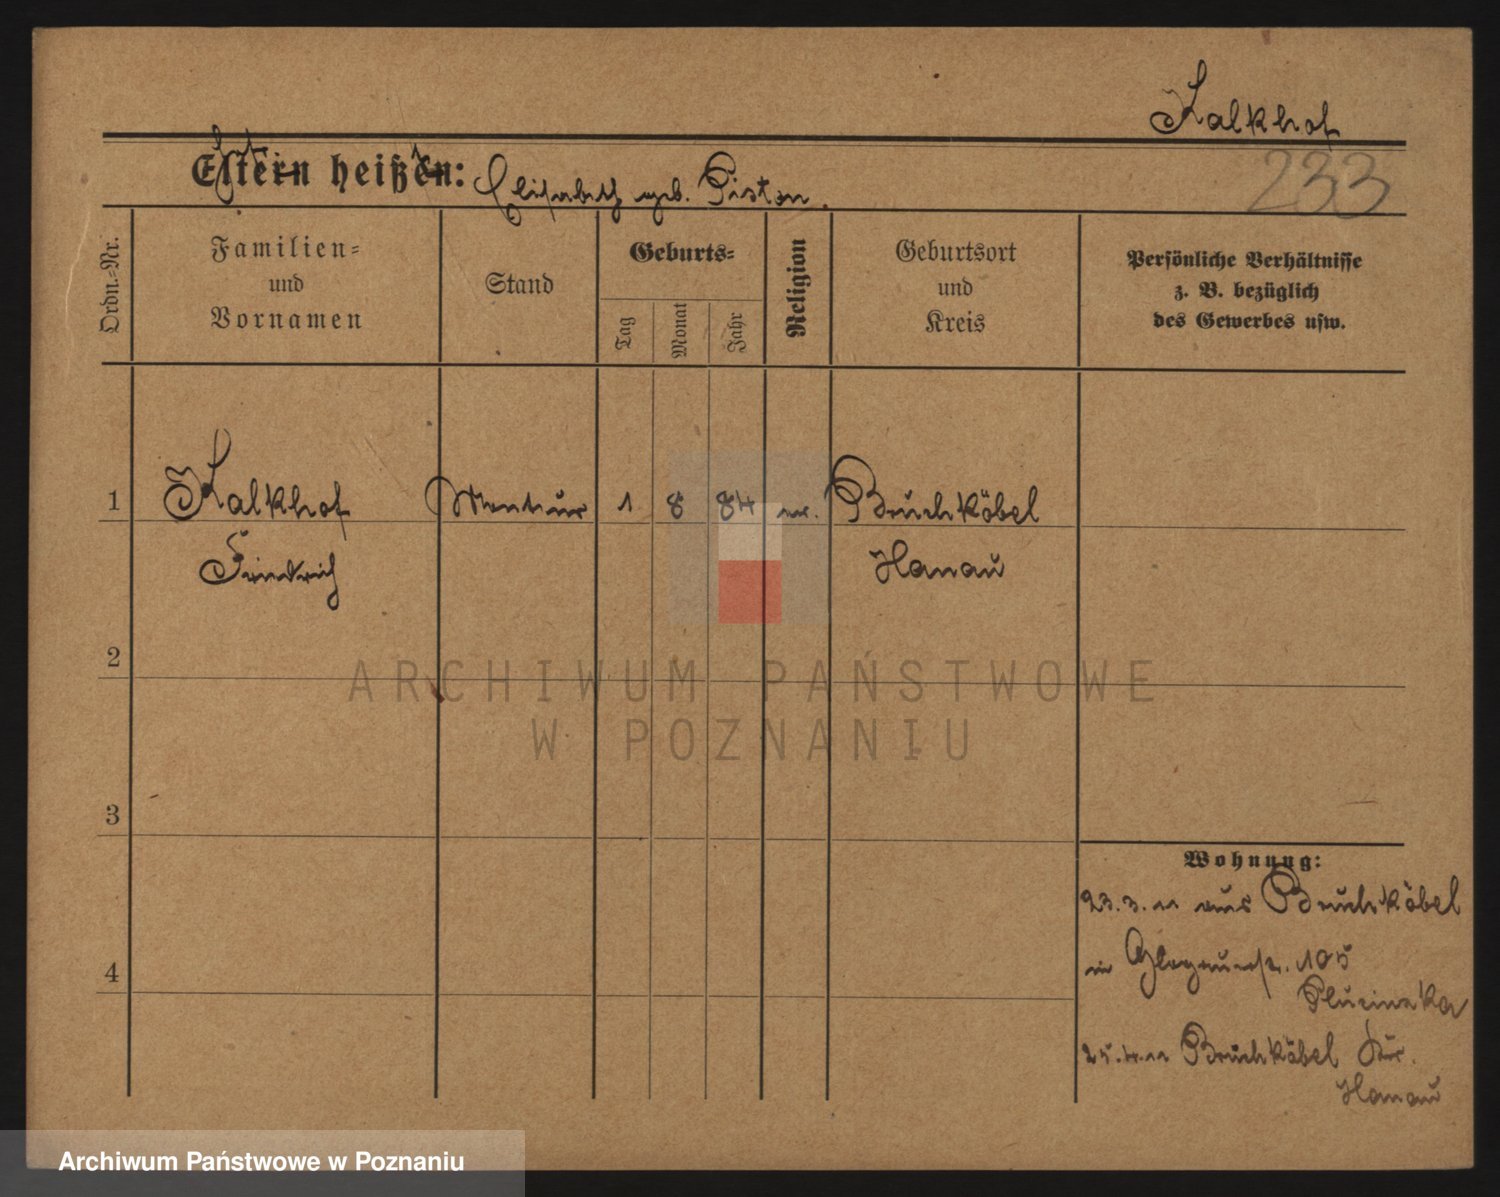 Kalkhof
233
Eltern heißen: Elisabeth geb. Piston.
Ordn.-Nr.
Familien-
und
Vornamen
Stand
Geburts-
Tag
Monat
Jahr
Religion
Geburtsort
und
Kreis
Persönliche Verhältnisse
z. B. bezüglich
des Gewerbes usw.
1 Kalkhof Monteur 1 8 84 Bruchköbel
Friedrich Hanau
2
3
4
Wohnung:
23.3.11 aus Bruchköbel
in Glogauerstr. 105
Plucinska
25.4.11 Bruchköbel Kr.
Hanau
ARCHIWUM PAŃSTWOWE
W POZNANIU
Archiwum Państwowe w Poznaniu